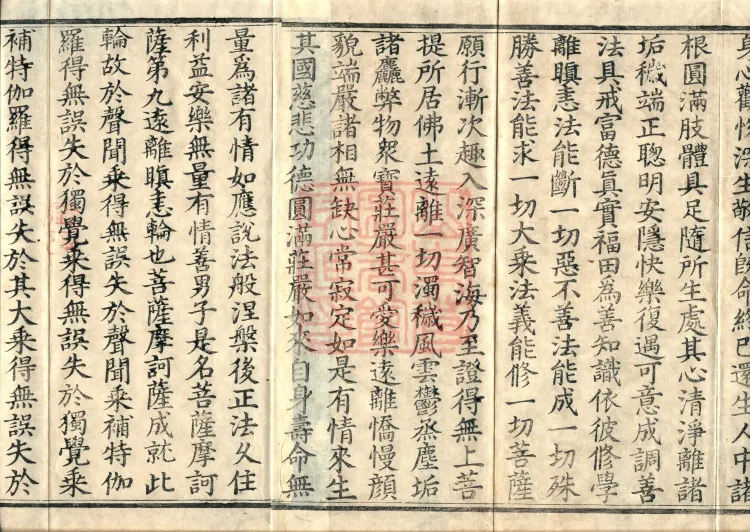 身心觀悅深生敬信既命終已還生人中諸
根圓滿肢體具足隨所生處其心清淨離諸
垢穢端正聰明安隱快樂復遇可意成調善
法具戒富德眞實福田為善知識依彼修學
離瞋恚法能斷一切惡不善法能成一切殊
勝善法能求一切大乘法義能修一切菩薩
願行漸次趣入深廣智海乃至證得無上菩
提所居佛土遠離一切濁穢風雲鬱烝塵垢
諸麤弊物衆寶莊嚴甚可愛樂遠離憍慢顏
貌端嚴諸相無缺心常寂定如是有情來生
其國慈悲功德圓滿莊嚴如來自身壽命無
量爲諸有情如應說法般涅槃後正法久住
利益安樂無量有情善男子是名菩薩摩訶
薩第九遠離瞋恚輪也菩薩摩訶薩成就此
輪故於聲聞乘得無誤失於聲聞乘補特伽
羅得無誤失於獨覺乘得無誤失於獨覺乘
補特伽羅得無誤失於其大乘得無誤失於